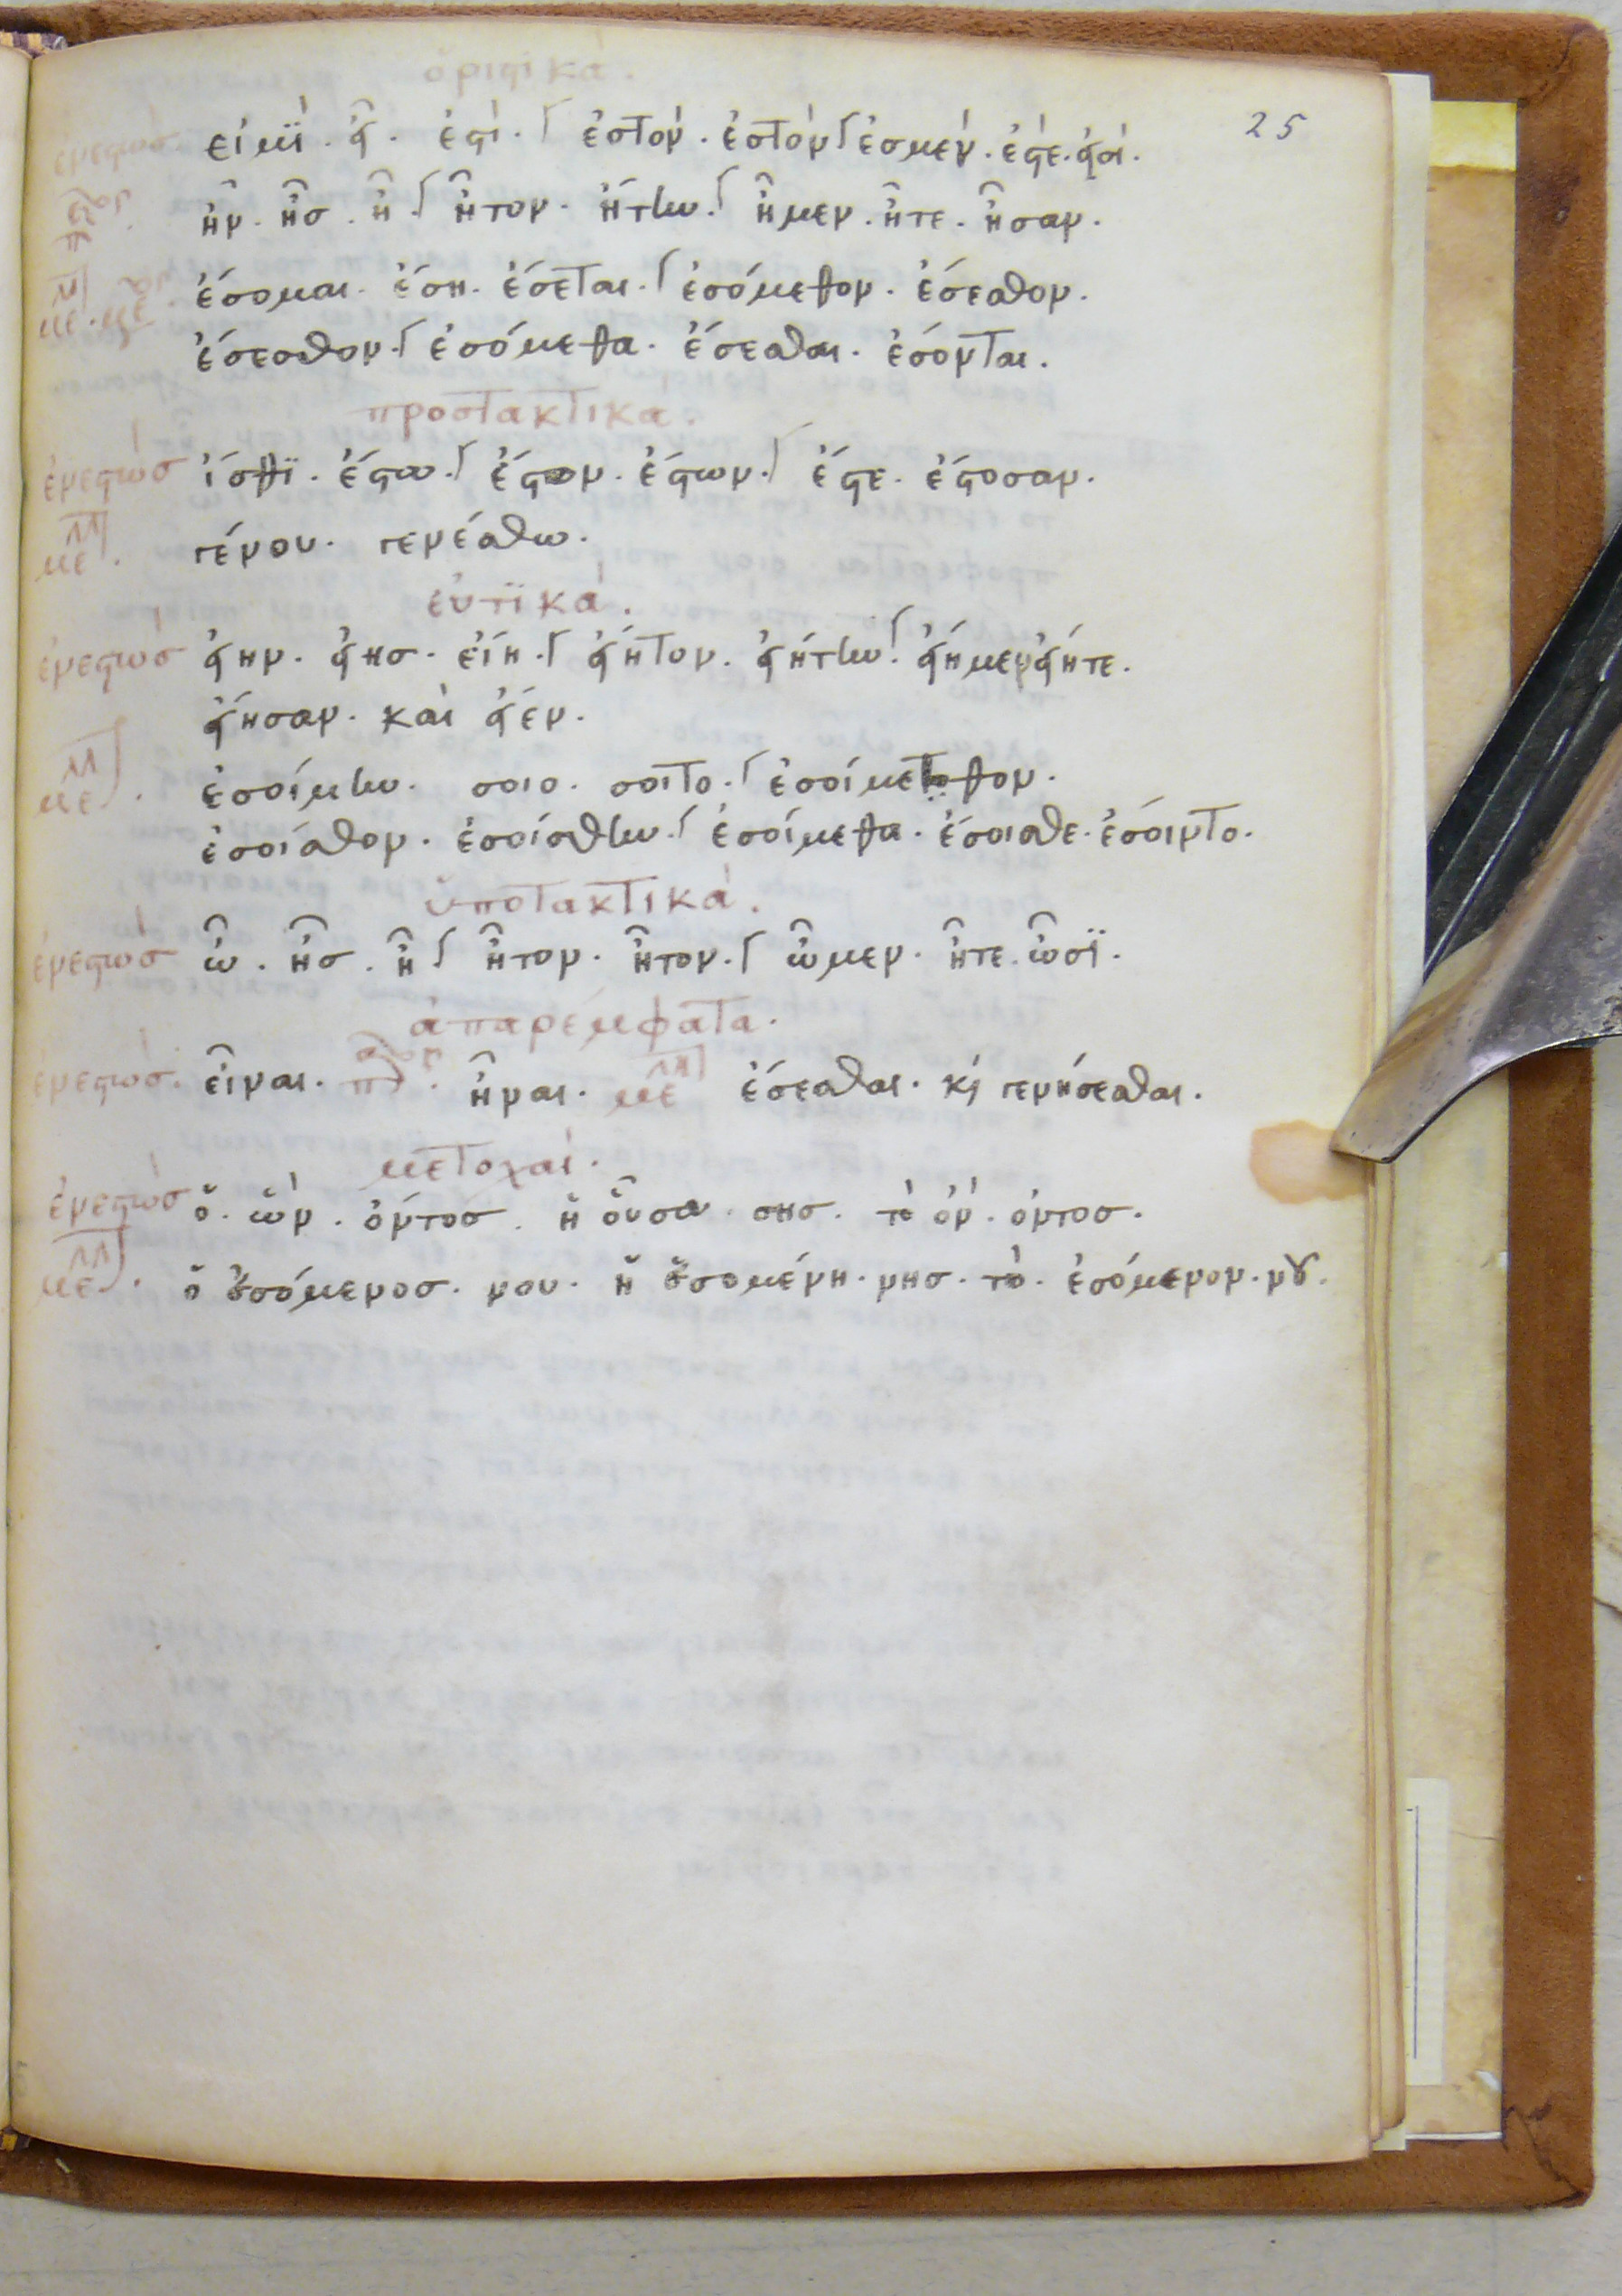 ὁριστικά.
25
ἐνεστώσ. εἰμῒ. εἶ. ἐστὶ. ἐστὸν. ἐστὸν ἐσμὲν. ἐστὲ. εἰσὶ.
ἦν. ἦσ. ἦ. ἦτον. ἤτην. ἦμεν. ἦτε. ἦσαν.
ἔσομαι. ἔση. ἔσεται. ἐσόμεθον. ἔσεσθον.
ἔσεσθον. ἐσόμεθα. ἔσεσθαι. ἔσονται.
προστακτικα.
ἐνεστὼσ ἴσθϊ. ἔστω. ἔστον. ἔστων. ἔστε. ἔστοσαν.
μελ. γένου. γενέσθω.
εὐτϊκὰ.
ἐνεστὼσ εἴην. εἴησ. εἴη. εἴητον. εἰήτην. εἴημεν εἴητε.
εἴησαν. καὶ εἶέν.
μελλ. ἐσοίμην. σοιο. σοιτο. ἐσοίμεθον.
ἐσοίσθον. ἐσοίσθην. ἐσοίμεθα. ἔσοισθε. ἔσοιντο.
ὑποτακτικὰ.
ἐνεστὼσ ὦ. ἦσ. ἦ ἦτον. ἦτον. ὦμεν. ἦτε. ὦσϊ.
ἀπαρέμφατα.
ἐνεστὼσ. εἶναι. ἦναι. μελλ ἔσεσθαι. κὶ γενήσεσθαι.
μετοχαὶ.
ἐνεστὼσ ὁ. ὢν. ὄντοσ. ἡ οὖσα. σησ. τὸ ὂν. ὄντοσ.
μελλ. ὁ ἐσόμενοσ. νου. ἡ ἐσομένη. νησ. τὸ. ἐσόμενον. νου.